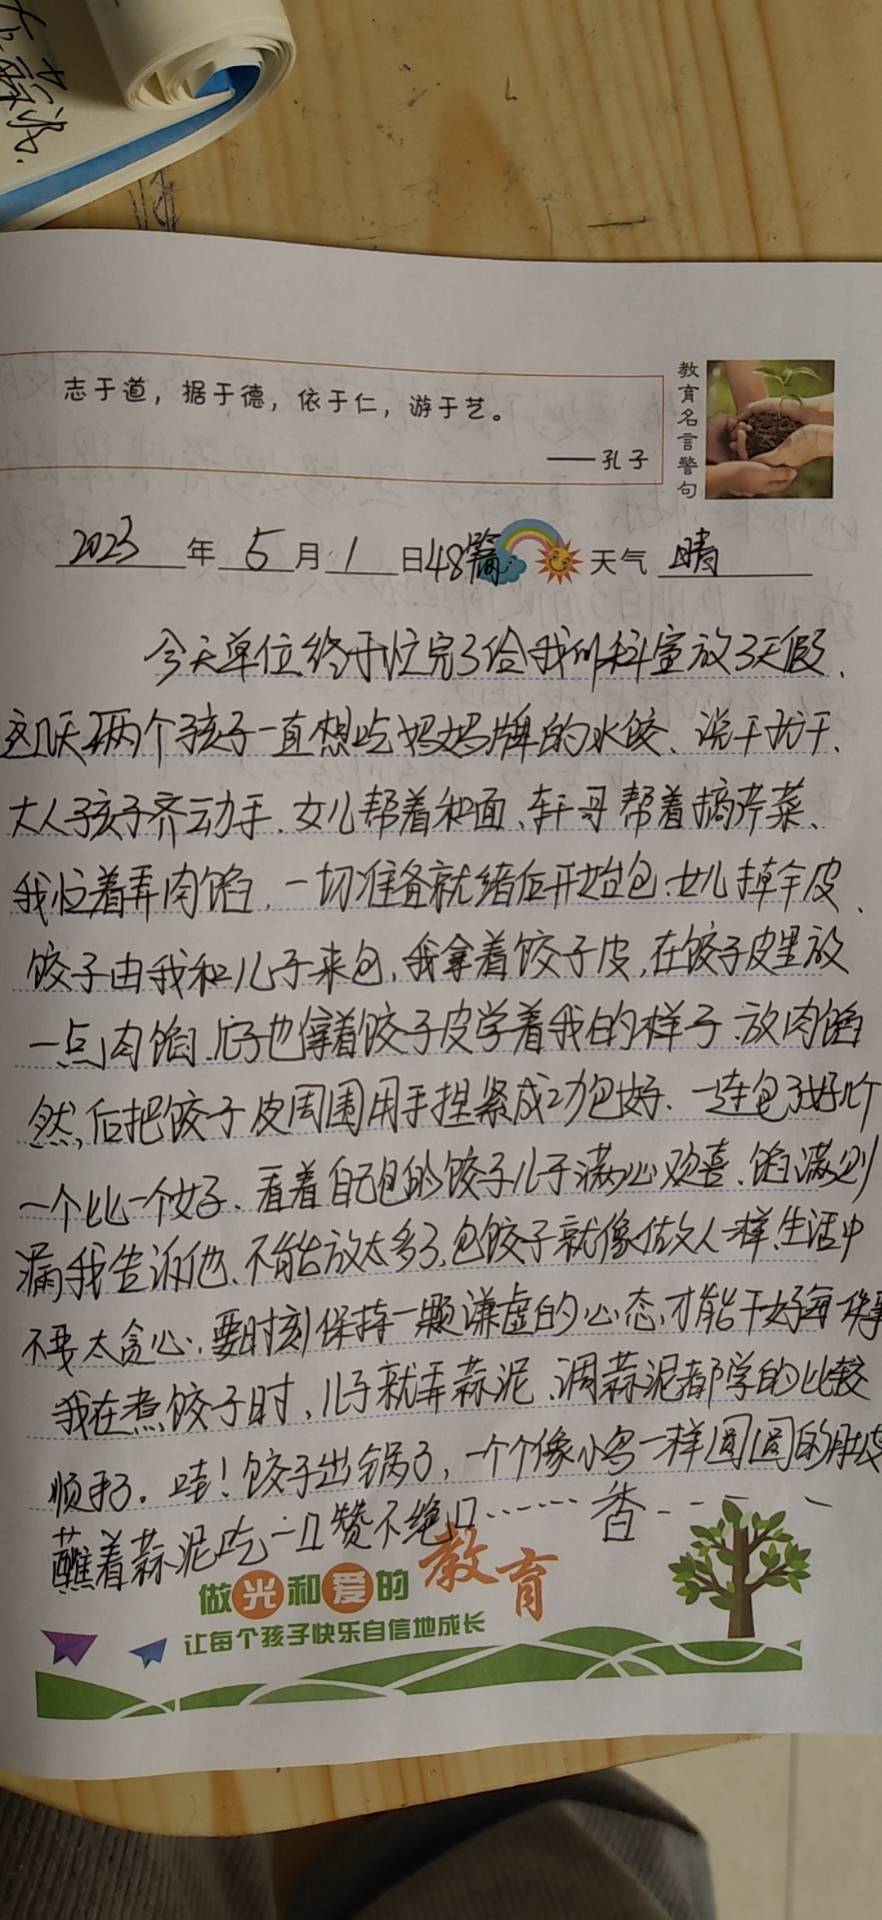 志于道，据于德，依于仁，游于艺。
——孔子
教育名言警句
2023年5月1日48篇 天气 晴
今天单位终于忙完了给我们科室放了天假、
这几天两个孩子一直想吃妈妈牌的水饺、说干就干、
大人孩子齐动手、女儿帮着和面、轩哥帮着摘芹菜、
我忙着弄肉馅，一切准备就绪后开始包、女儿擀皮、
饺子由我和儿子来包，我拿着饺子皮，在饺子皮里放
一点肉馅、儿子也拿着饺子皮学着我的样子、放肉馅
然后把饺子皮周围用手捏紧成功包好、一连包了好几个
一个比一个好、看着自己包的饺子儿子满心欢喜、馅满则
漏我告诉他、不能放太多了、包饺子就像做人一样、生活中
不要太贪心、要时刻保持一颗谦虚的心态、才能干好每件事
我在煮饺子时、儿子就弄蒜泥、调蒜泥都学的比较
顺手了。哇！饺子出锅了，一个个像小鸟一样圆圆的肚皮
蘸着蒜泥吃一口赞不绝口……香……
做光和爱的教育
让每个孩子快乐自信地成长